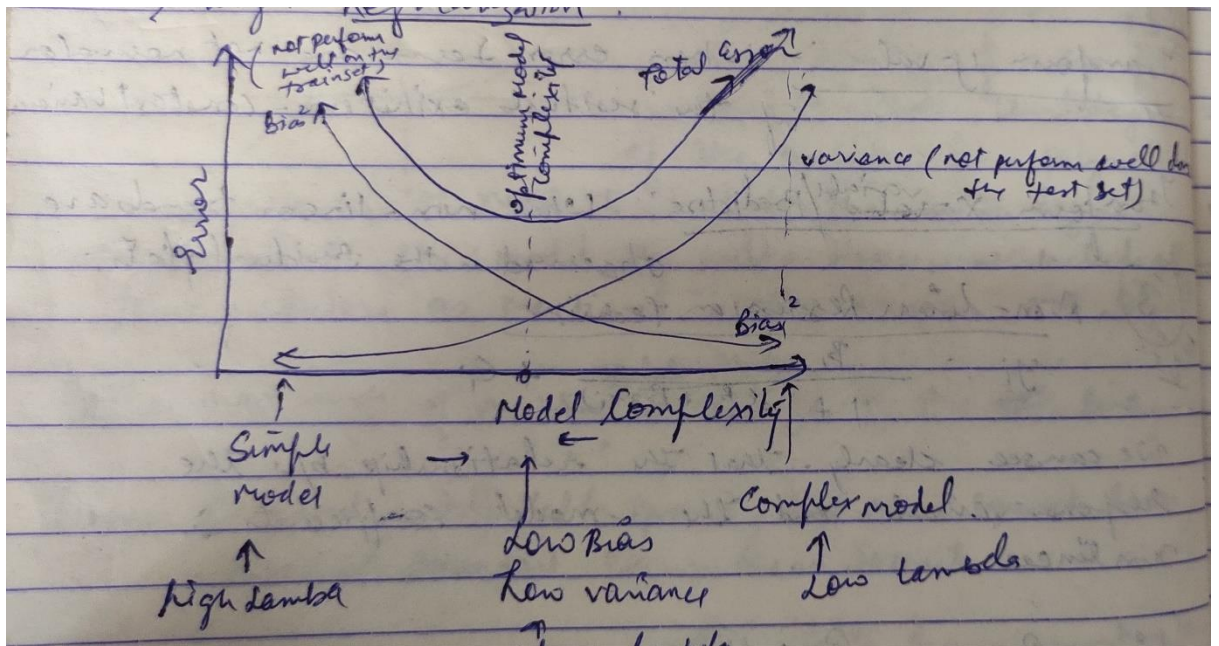 Regularization.
(not perform
well on the
trainset)
Bias²
optimum Model
Complexity
Total Error
variance (not perform well on
the test set)
Error
Bias²
Model Complexity
Simple
model
Complex model.
Low Bias
Low variance
High Lamba
Low Lambda